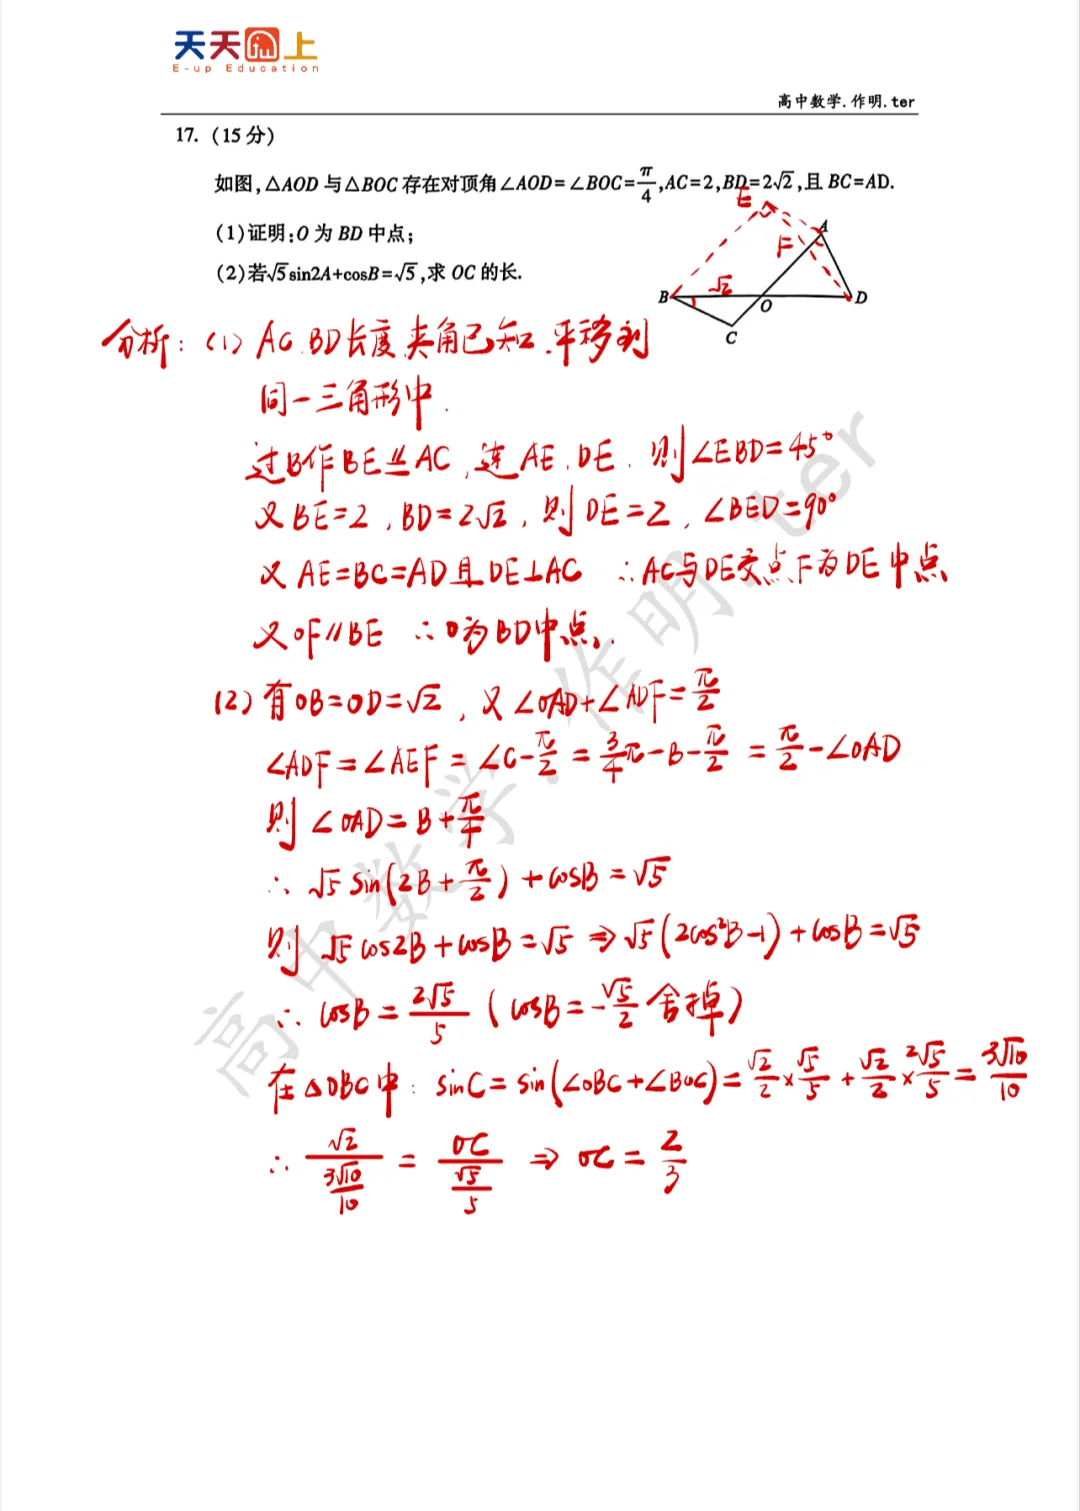 天天向上
E-up Education
高中数学.作明.ter
17. (15分)
如图,△AOD 与△BOC 存在对顶角∠AOD=∠BOC=π/4,AC=2,BD=2√2,且 BC=AD.
(1)证明:O 为 BD 中点;
(2)若√5sin2A+cosB=√5,求 OC 的长.
E
A
F
B
√2
O
D
C
分析:(1) AC.BD长度夹角已知.平移到
同一三角形中.
过B作BE⫽AC,连AE.DE. 则∠EBD=45°
又BE=2,BD=2√2,则DE=2,∠BED=90°
又AE=BC=AD且DE⊥AC ∴AC与DE交点F为DE中点
又OF∥BE ∴O为BD中点.
(2)有OB=OD=√2,又∠OAD+∠ADF=π/2
∠ADF=∠AEF=∠C-π/2=3/4π-B-π/2=π/2-∠OAD
则∠OAD=B+π/4
∴√5sin(2B+π/2)+cosB=√5
则√5cos2B+cosB=√5⇒√5(2cos²B-1)+cosB=√5
∴cosB=2√5/5(cosB=-√5/2舍掉)
在△OBC中:sinC=sin(∠OBC+∠BOC)=√2/2×√5/5+√2/2×2√5/5=3√10/10
∴√2/(3√10/10)=OC/(√5/5)⇒OC=2/3
高中数学.作明.ter